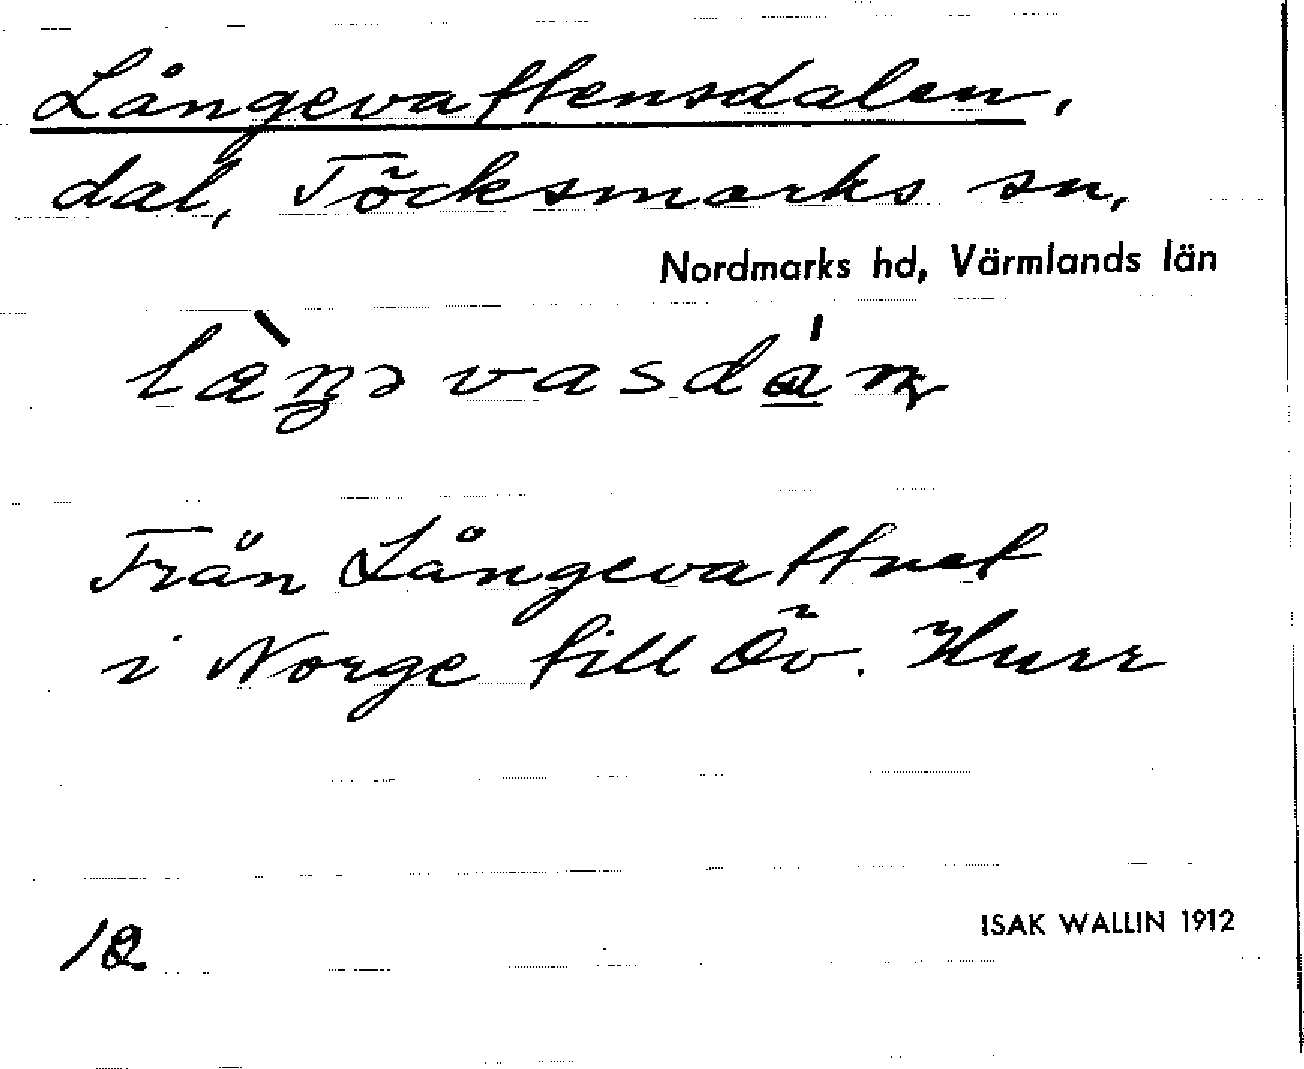 Långevattensdalen,
dal, Töcksmarks sn,
Nordmarks hd, Värmlands län
Från Långevattnet
i Norge till Öv. Hurr
12
ISAK WALLIN 1912